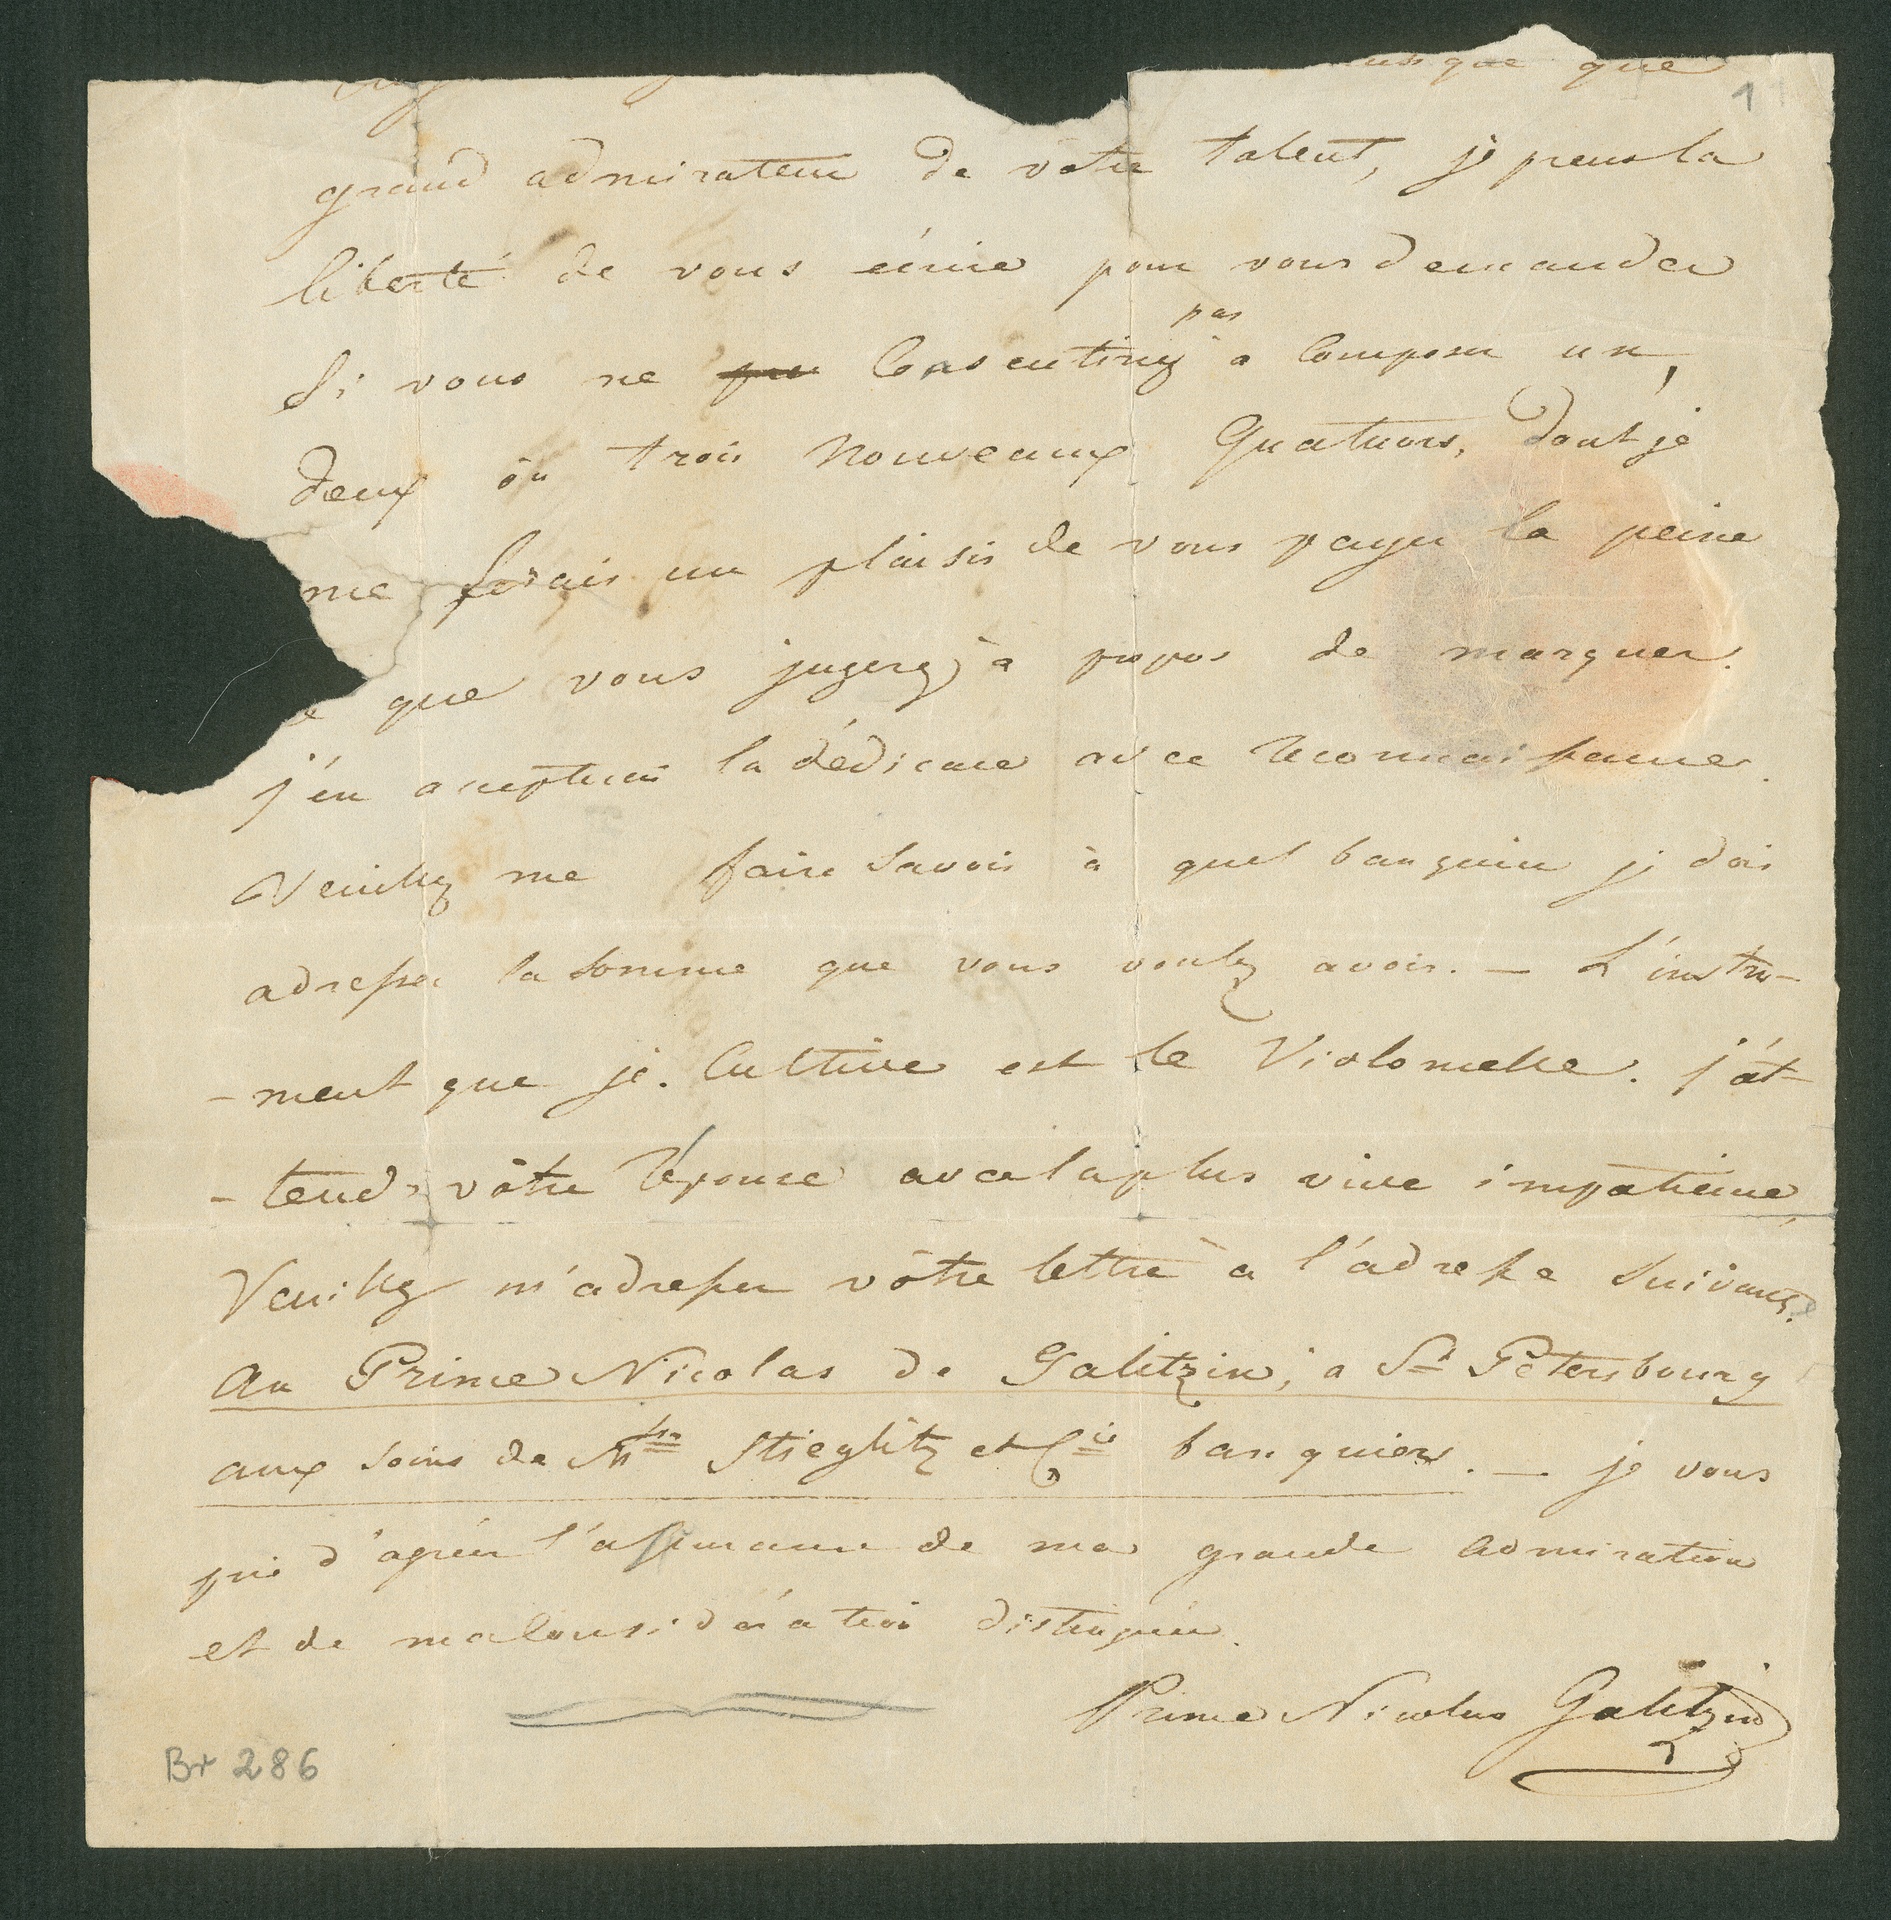 que
1
grand admirateur de vôtre talent, je prens la
liberté de vous écrire pour vous demander
si vous ne consentirez pas à composer un,
deux ou trois nouveaux Quatuors, dont je
me ferais un plaisir de vous payer la peine
que vous jugerez à propos de marquer.
j'en accepterai la dédicace avec reconnaissance.
Veuillez me faire savoir à quel banquier je dois
adresser la somme que vous voulez avoir. — L'instru-
-ment que je cultive est le Violoncelle. j'at-
-tends vôtre réponse avec la plus vive impatience,
Veuillez m'adresser vôtre lettre à l'adresse suivante.
Au Prince Nicolas de Galitzin, à St Pétersbourg
aux soins de Mssrs Stieglitz et Cie banquiers. — je vous
prie d'agréer l'assurance de ma grande admiration
et de ma considération distinguée.
Prince Nicolas Galitzin
Br 286